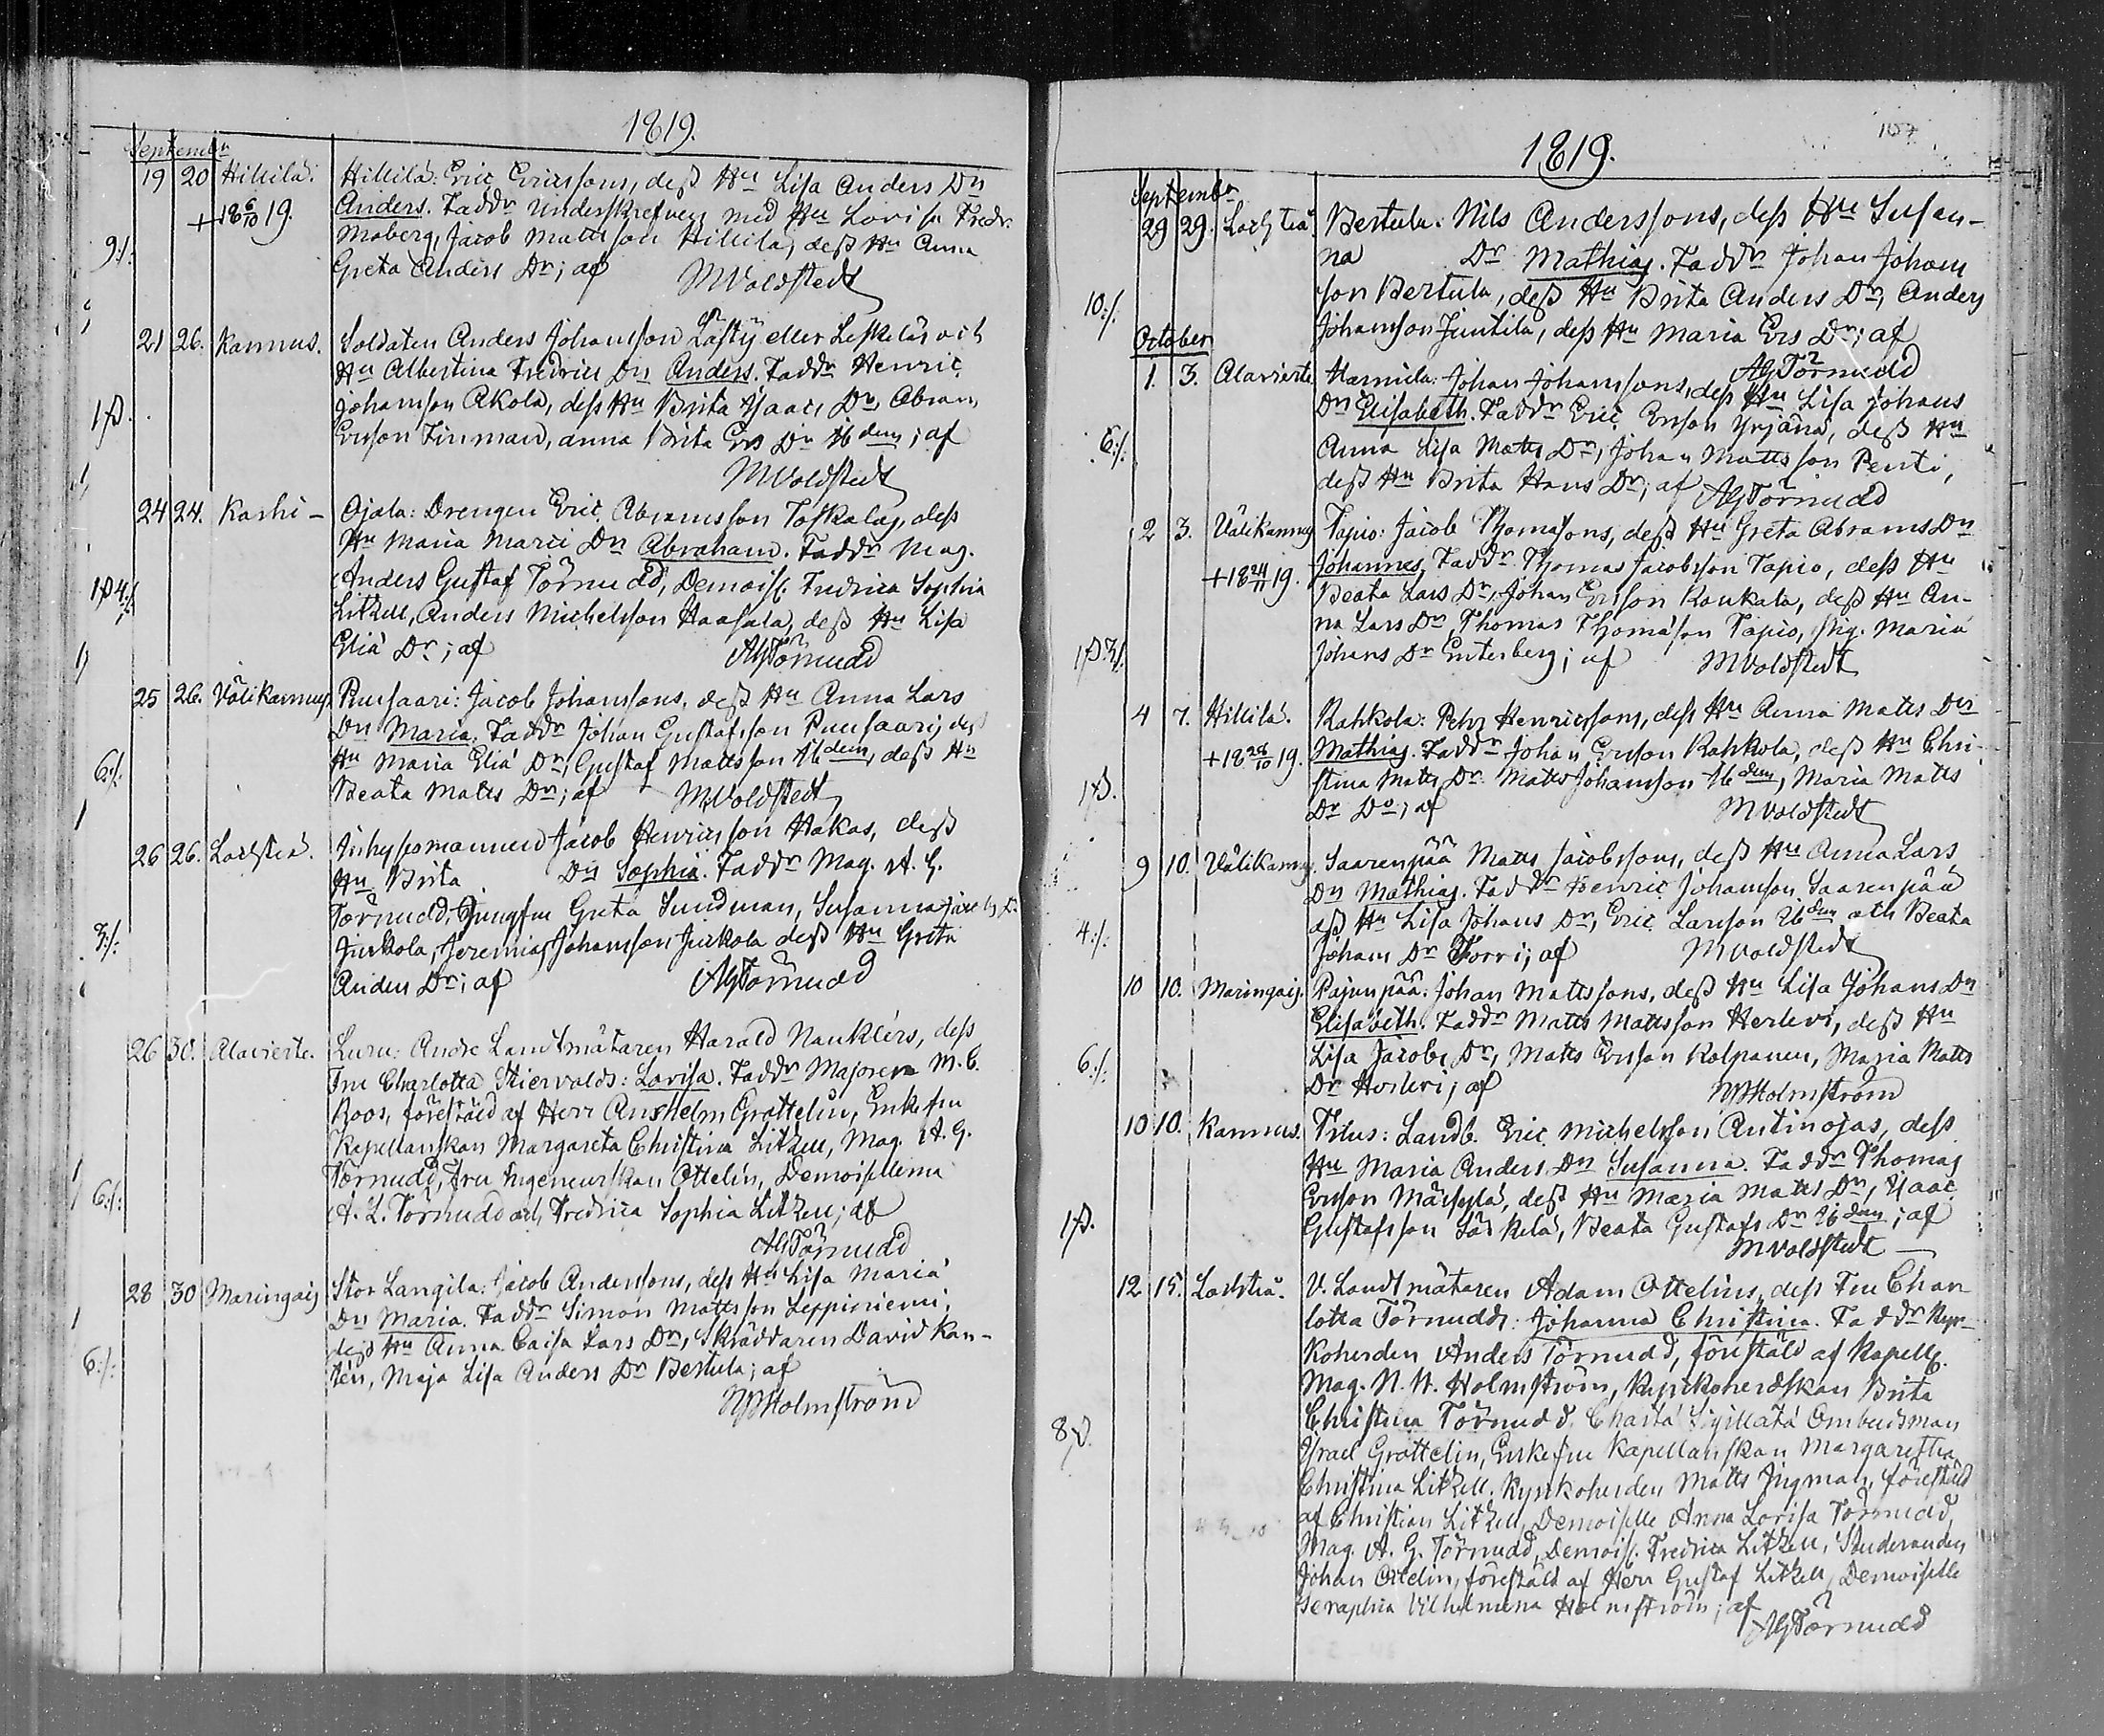 1819.
September
19 20 Hillilä. Hillilä: Eric Ericssons, dess Hu Lisa Anders Dr
+18 6/10 19. Anders. Faddr Underskrefven med Hu Lovisa Fredr.
9:/: Moberg, Jacob Mattsson Hillilä, dess Hu Anna
Greta Anders Dr; af MWoldstedt
21 26. Kannus. Soldaten Anders Johansson eller Leskeläs och
Hu Albertina Fredrics Dr Anders. Faddr Henric
1β. Johansson Akola, dess Hu Brita Isaacs Dr, Abram
Ersson Finman, Anna Brita Ers Dr ibdem; af
MWoldstedt
24 24. Kashi- Ojala: Drengen Eric Abramsson Toskalas, dess
Hu Maria Marci Dr Abraham. Faddr Mag.
1β4:/: Anders Gustaf Törnudd, Demoisl. Fredrica Sophia
Litzell, Anders Michelsson Haasala, dess Hu Lisa
Eliæ Dr; af AGTörnudd
25 26. Välikannus. Puusaari: Jacob Johanssons, dess Hu Anna Lars
Dr Maria. Faddr Johan Gustafsson Puusaari, dess
6:/: Hu Maria Eliæ Dr, Gustaf Mattsson ibdem, dess Hu
Beata Matts Dr; af MWoldstedt
26 26. Lochteå. Inhysesmannen Jacob Henricsson Hakas, dess
Hu Brita Dr Sophia. Faddr Mag. A. G.
Törnudd, Jungfru Greta Sundman, Susanna Jacobs Dr
3:/: Juckola, Jeremias Johansson Juckola dess Hu Greta
Anders Dr; af AGTörnudd
26 30. Alavierte. Luru: Andre Landtmätaren Harald Nauklérs, dess
Fru Charlotta Stiervalds: Lovisa. Faddr Majoren M. C.
Roos, föreställd af Herr Anshelm Grottelin, Enkefru
Kapellanskan Margareta Christina Litzell, Mag. A. G.
Törnudd, Fru Ingeneurskan Ottelin, Demoisellerna
6:/: A. L. Törnudd och Fredrica Sophia Litzell; af
AGTörnudd
28 30 Maringais Stor Langila: Jacob Anderssons, dess Hu Lisa Maria
Dr Maria. Faddr Simon Mattsson Leppiniemi,
6:/: dess Hu Anna Caisa Lars Dr, Skräddaren David Kan-
tén, Maja Lisa Anders Dr Bertula; af
NHHolmström
107
1819.
September
29 29. Lochteå. Bertula: Nils Anderssons, dess Hu Susan-
na Dr Mathias. Faddr Johan Johans
10:/: son Bertula, dess Hu Brita Anders Dr, Anders
Johansson Juntila, dess Hu Maria Ers Dr; af
AGTörnudd
October
1. 3. Alavierte Harmila: Johan Johanssons, dess Hu Lisa Johans
Dr Elisabeth. Faddr Eric Ersson Yrjänä, dess Hu
6:/: Anna Lisa Matts Dr, Johan Mattsson Penti,
dess Hu Brita Hans Dr; af AGTörnudd
2 3. Välikannus Tapio: Jacob Thomassons, dess Hu Greta Abrams Dr
+18 24/11 19. Johannes. Faddr Thomas Jacobsson Tapio, dess Hu
Beata Lars Dr, Johan Ersson Raukala, dess Hu An-
na Lars Dr, Thomas Thomasson Tapio, Pig. Maria
1β3:/: Johans Dr Enterberg; af MWoldstedt
4 7. Hillilä. Rahkola: Pehr Henricssons, dess Hu Anna Matts Dr
+18 28/10 19. Mathias. Faddr Johan Ersson Rahkola, dess Hu Chri-
1β. stina Matts Dr. Matts Johansson ibdem, Maria Matts
Dr Do; af MWoldstedt
9 10. Välikannus. Saarenpää Matts Jacobssons, dess Hu Anna Lars
Dr Mathias. Faddr Henric Johansson Saarenpää
4:/: dess Hu Lisa Johans Dr, Eric Larsson ibdem och Beata
Johans Dr Torri; af MWoldstedt
10 10. Maringais. Pajunpää: Johan Mattssons, dess Hu Lisa Johans Dr
Elisabeth. Faddr Matts Mattsson Herlevi, dess Hu
6:/: Lisa Jacobs Dr, Matts Ersson Kolpanen, Maria Matts
Dr Herlevi; af NHHolmström
10 10. Kannus. Titus: Landb. Eric Michelsson Antinojas, dess
Hu Maria Anders Dr Susanna. Faddr Thomas
Ersson Märsylä, dess Hu Maria Matts Dr, Isaac
1β. Gustafsson Säikelä, Beata Gustafs Dr ibdem; af
MWoldstedt
12 15. Lochteå. V. Landtmätaren Adam Ottelins, dess Fru Char-
lotta Törnudds: Johanna Christina. Faddr Kyr-
koherden Anders Törnudd, föreställd af Kapell.
Mag. N. H. Holmström, Kyrkoherdskan Brita
Christina Törnudd. Chartæ Sigillatæ Ombudsman
8β. Israel Grottelin, Enkefru Kapellanskan Margaretha
Christina Litzell. Kyrkoherden Matts Ingman, föreställd
af Christian Litzell, Demoiselle Anna Lovisa Törnudd,
Mag. A. G. Törnudd, Demoisl. Fredrica Litzell, Studeranden
Johan Ottelin, föreställd af Herr Gustaf Litzell, Demoiselle
Seraphia Vilhelmina Holmström; af
AGTörnudd